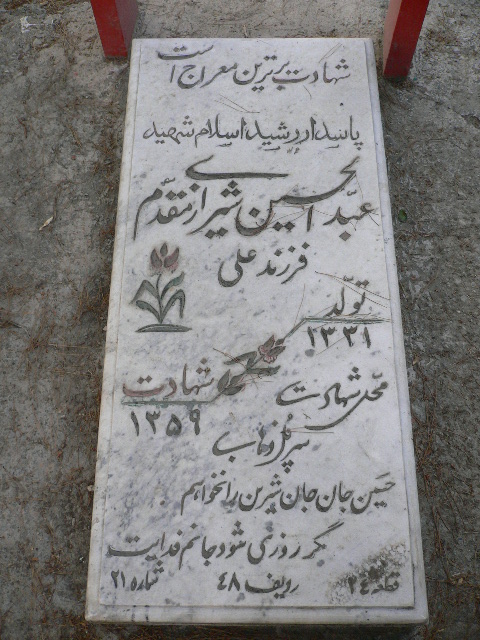 شهادت برترین معراج است
پاسدار رشید اسلام شهید
عبدالحسین شیرازی مقدم
فرزند علی
تولد
۱۳۳۱
شهادت
۱۳۵۹
محل شهادت
سرپل ذهاب
حسین جان جان شیرین را نخواهم
گر روزی شود جانم فدایت
قطعه ۲۴ ردیف ۴۸ شماره ۲۱